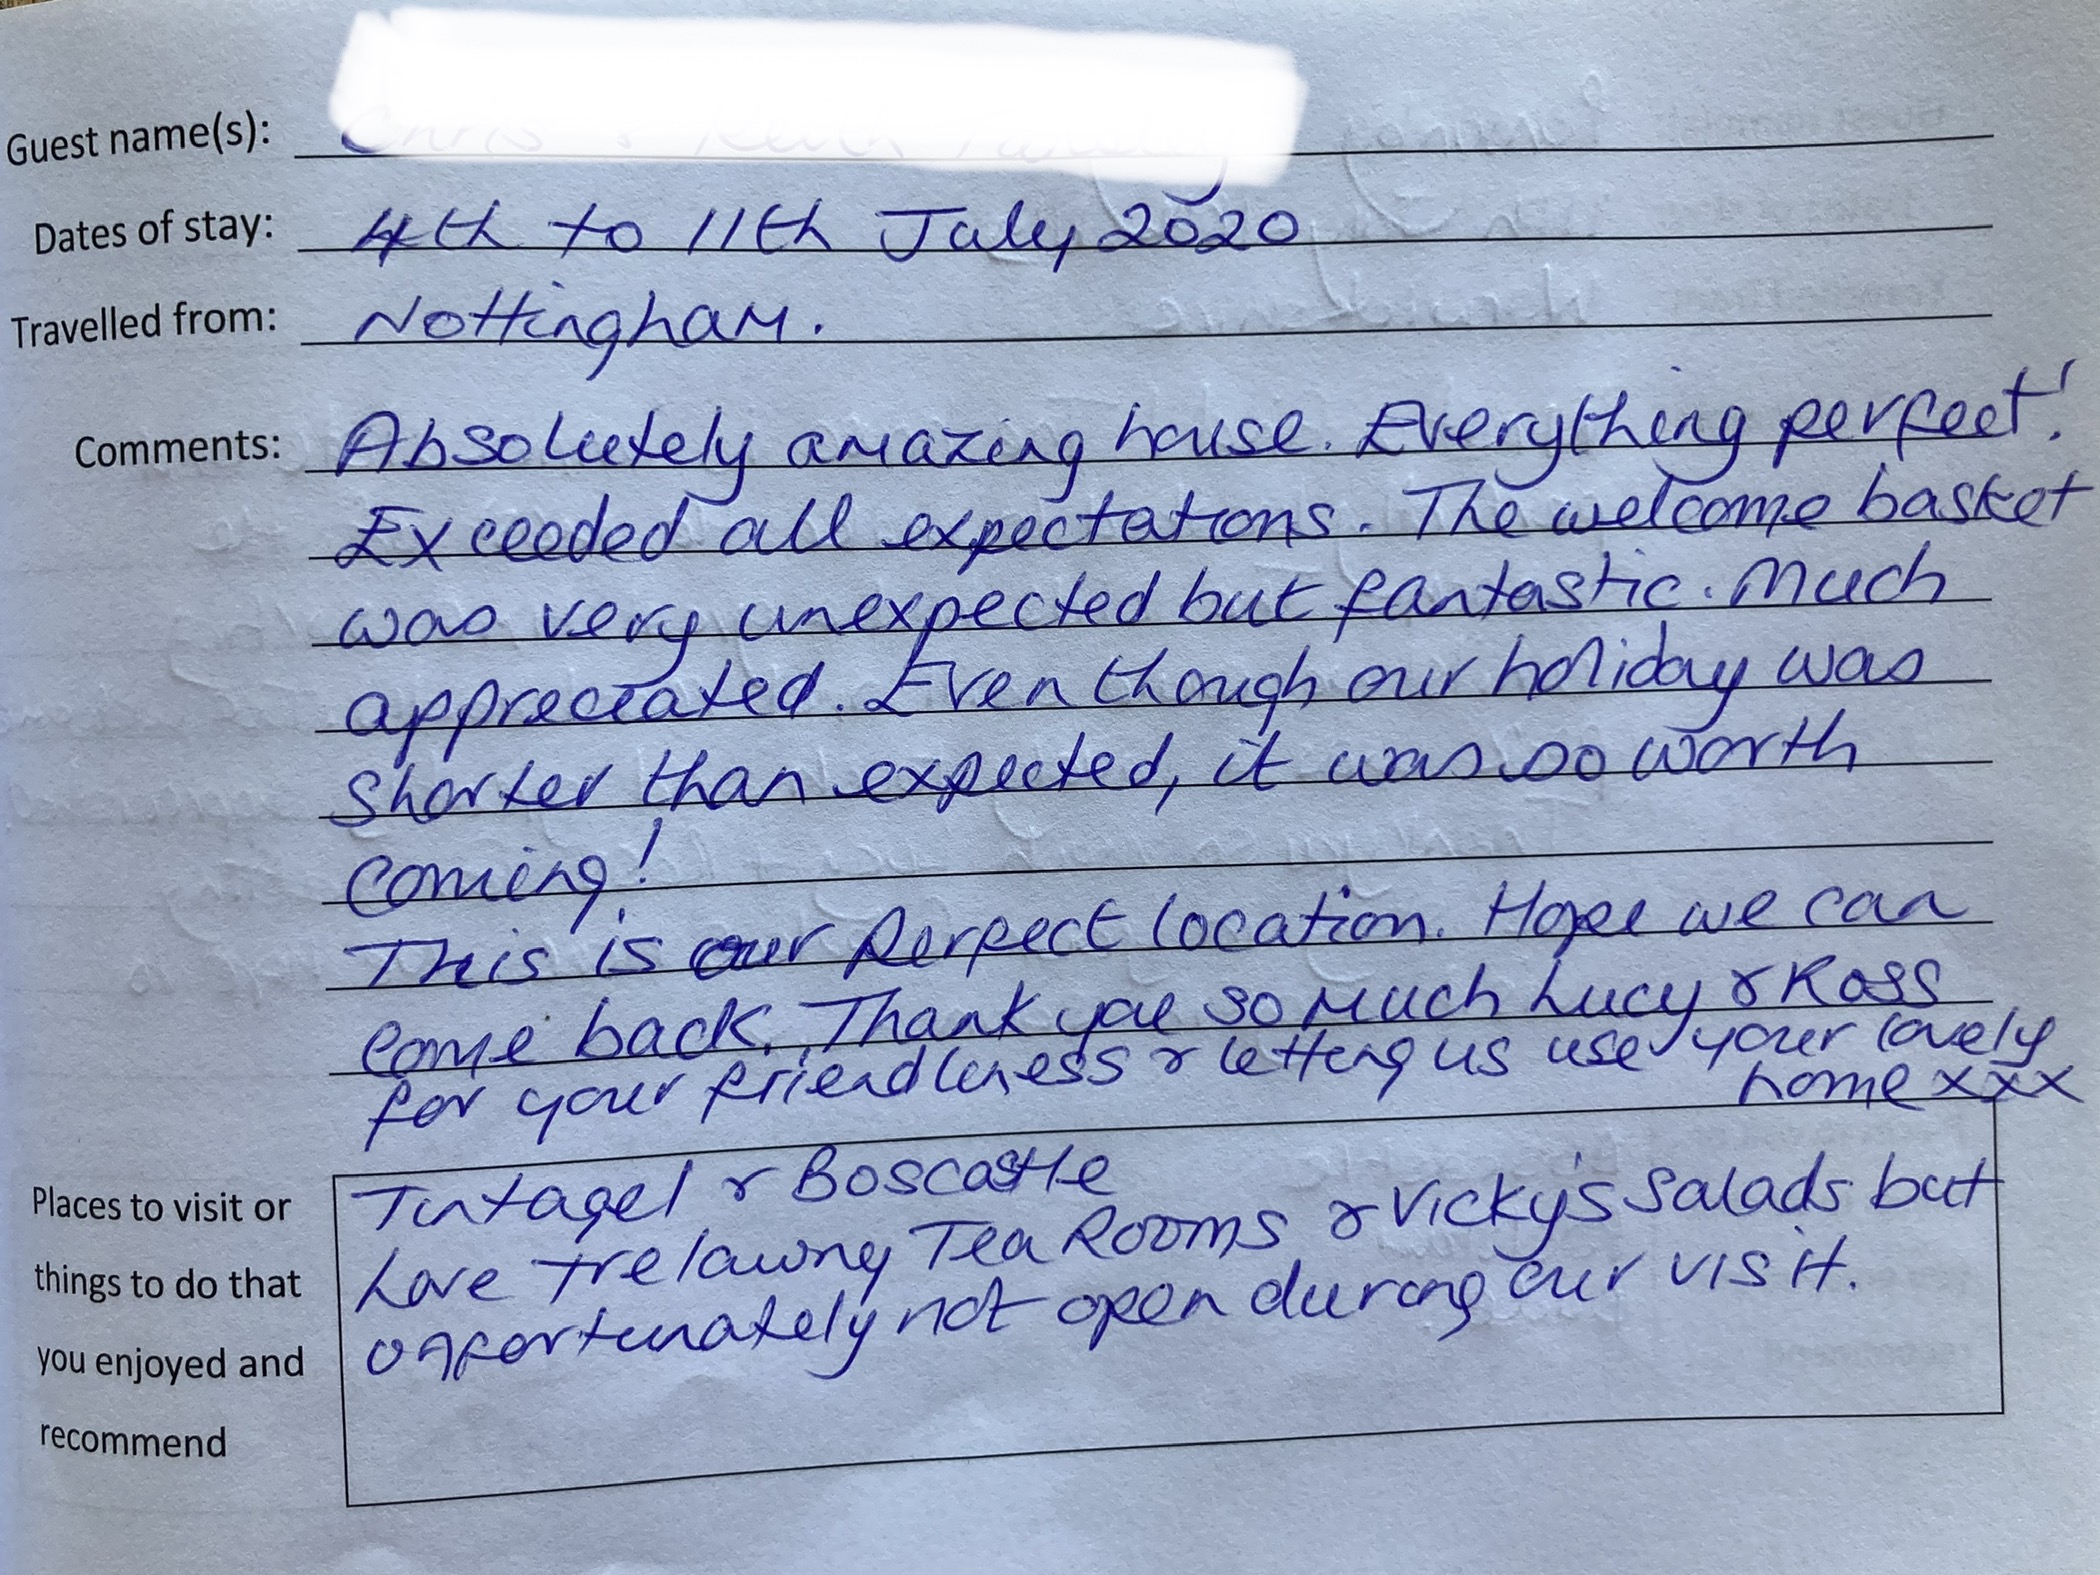 Guest name(s):
Dates of stay: 4th to 11th July 2020
Travelled from: Nottingham.
Comments: Absolutely amazing house. Everything perfect!
Exceeded all expectations. The welcome basket
was very unexpected but fantastic. Much
appreciated. Even though our holiday was
shorter than expected, it was so worth
coming!
This is our perfect location. Hope we can
come back. Thank you so much Lucy & Ross
for your friendliness & letting us use your lovely
home xxx
Places to visit or
things to do that
you enjoyed and
recommend
Tintagel & Boscastle
Love Trelawny Tea Rooms & Vicky's Salads but
unfortunately not open during our visit.